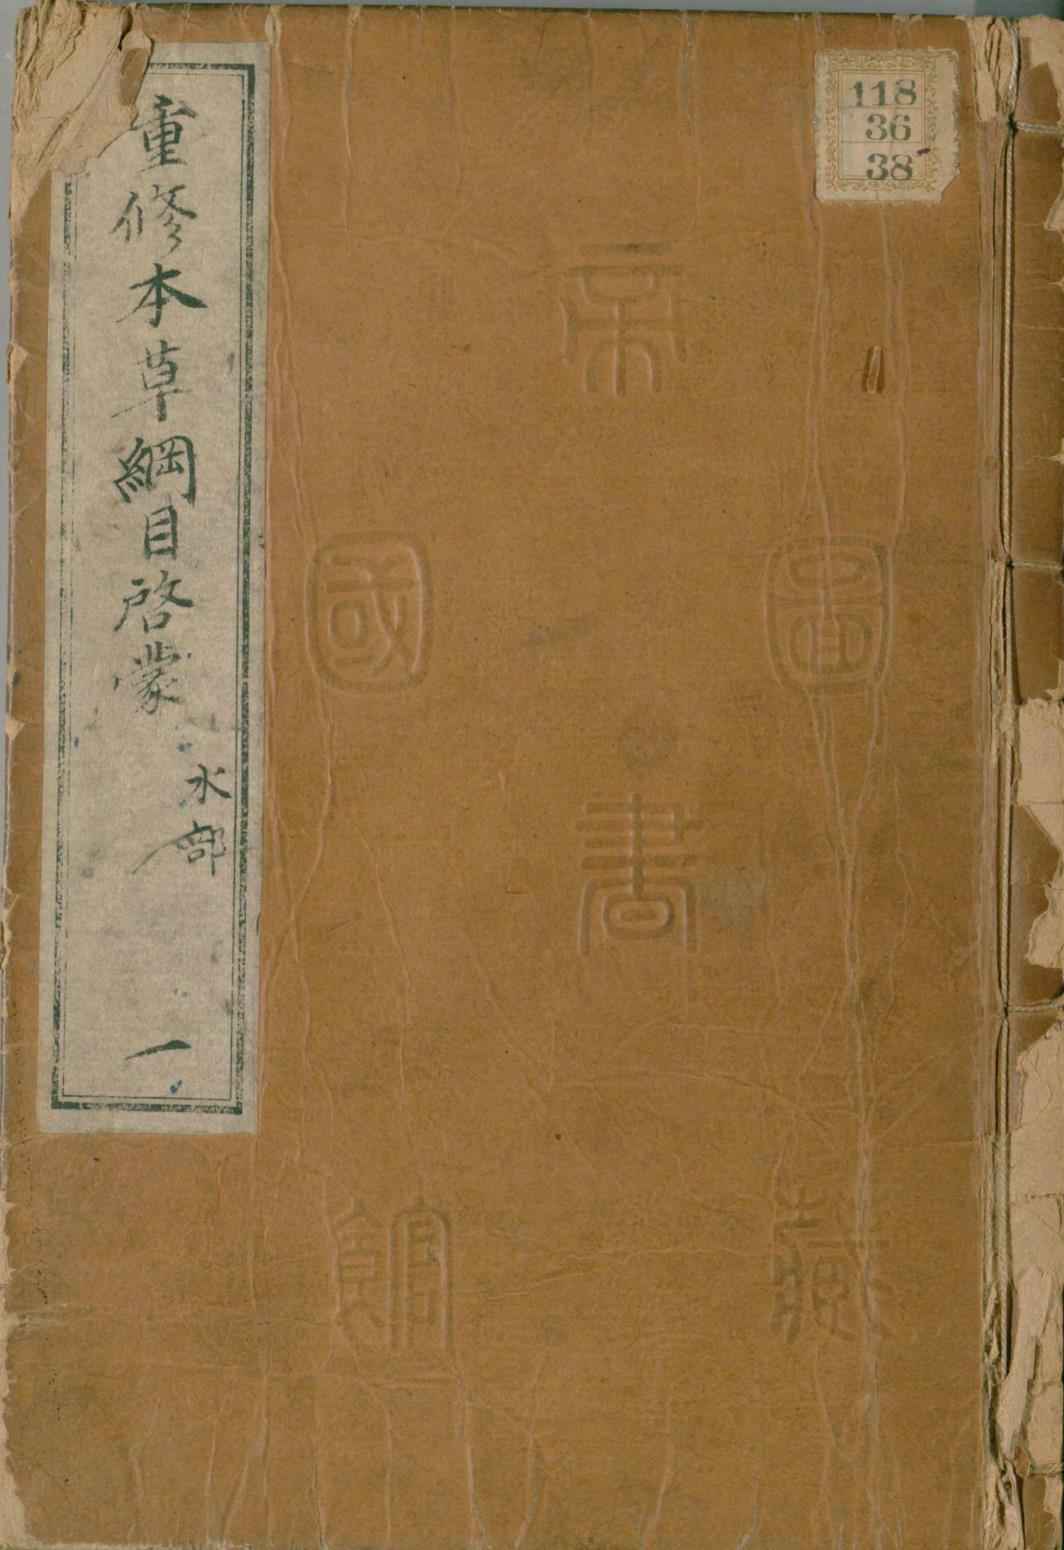 重修本草綱目啓蒙
水部
一
118
36
38
帝
國
圖
書
館
藏